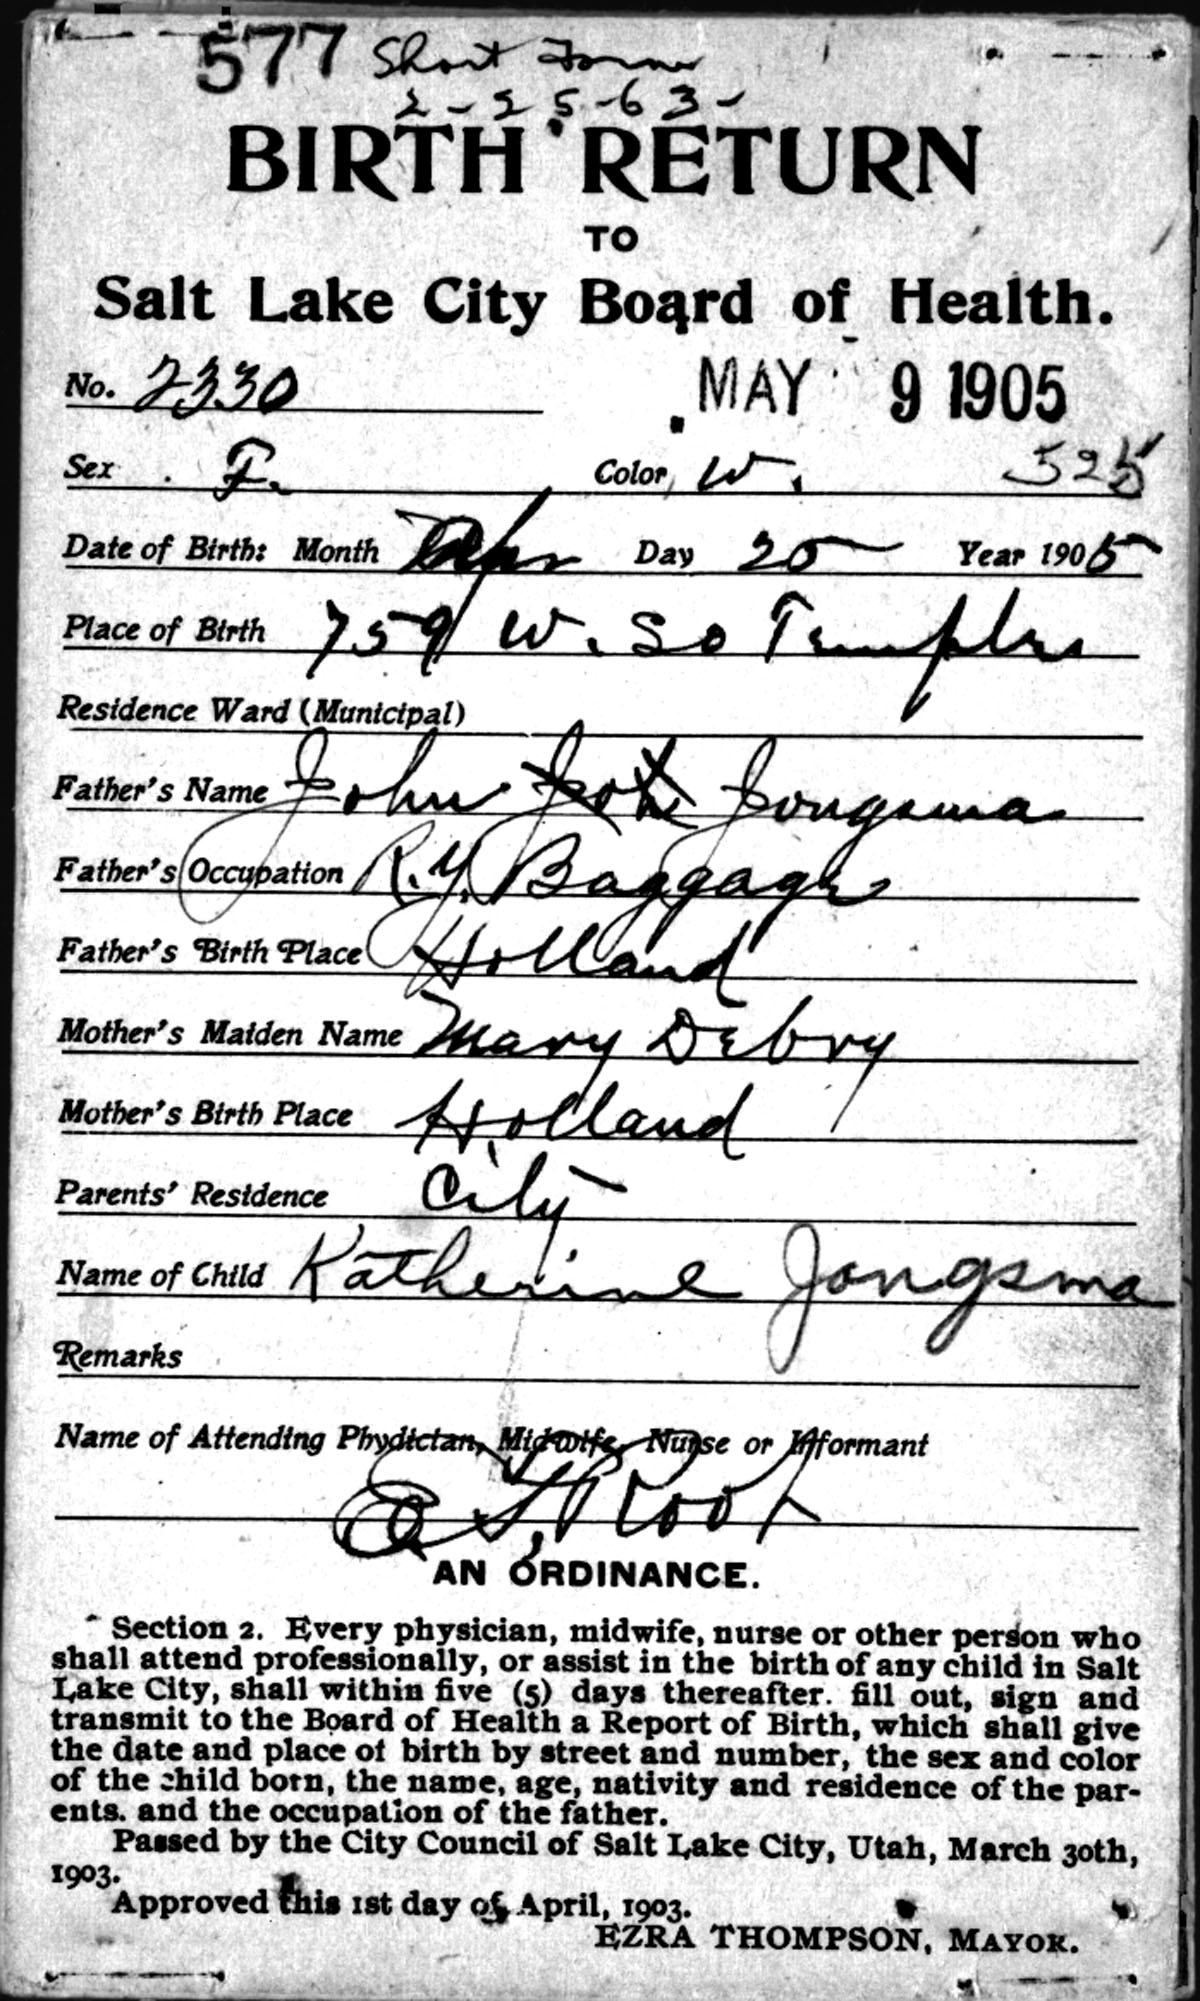 577 Short Form
2-25-63-
BIRTH RETURN
TO
Salt Lake City Board of Health.
No. 2330 MAY 9 1905
Sex F. Color W. 525
Date of Birth: Month Apr Day 25 Year 1905
Place of Birth 759 W. So Temple
Residence Ward (Municipal)
Father's Name John Jongsma
Father's Occupation R.Y. Baggage
Father's Birth Place Holland
Mother's Maiden Name Mary Debry
Mother's Birth Place Holland
Parents' Residence City
Name of Child Katherine Jongsma
Remarks
Name of Attending Phydictan, Midwife, Nurse or Informant
E. S. Root
AN ORDINANCE.
Section 2. Every physician, midwife, nurse or other person who
shall attend professionally, or assist in the birth of any child in Salt
Lake City, shall within five (5) days thereafter. fill out, sign and
transmit to the Board of Health a Report of Birth, which shall give
the date and place of birth by street and number, the sex and color
of the child born, the name, age, nativity and residence of the par-
ents. and the occupation of the father.
Passed by the City Council of Salt Lake City, Utah, March 30th,
1903.
Approved this 1st day of April, 1903.
EZRA THOMPSON, MAYOR.